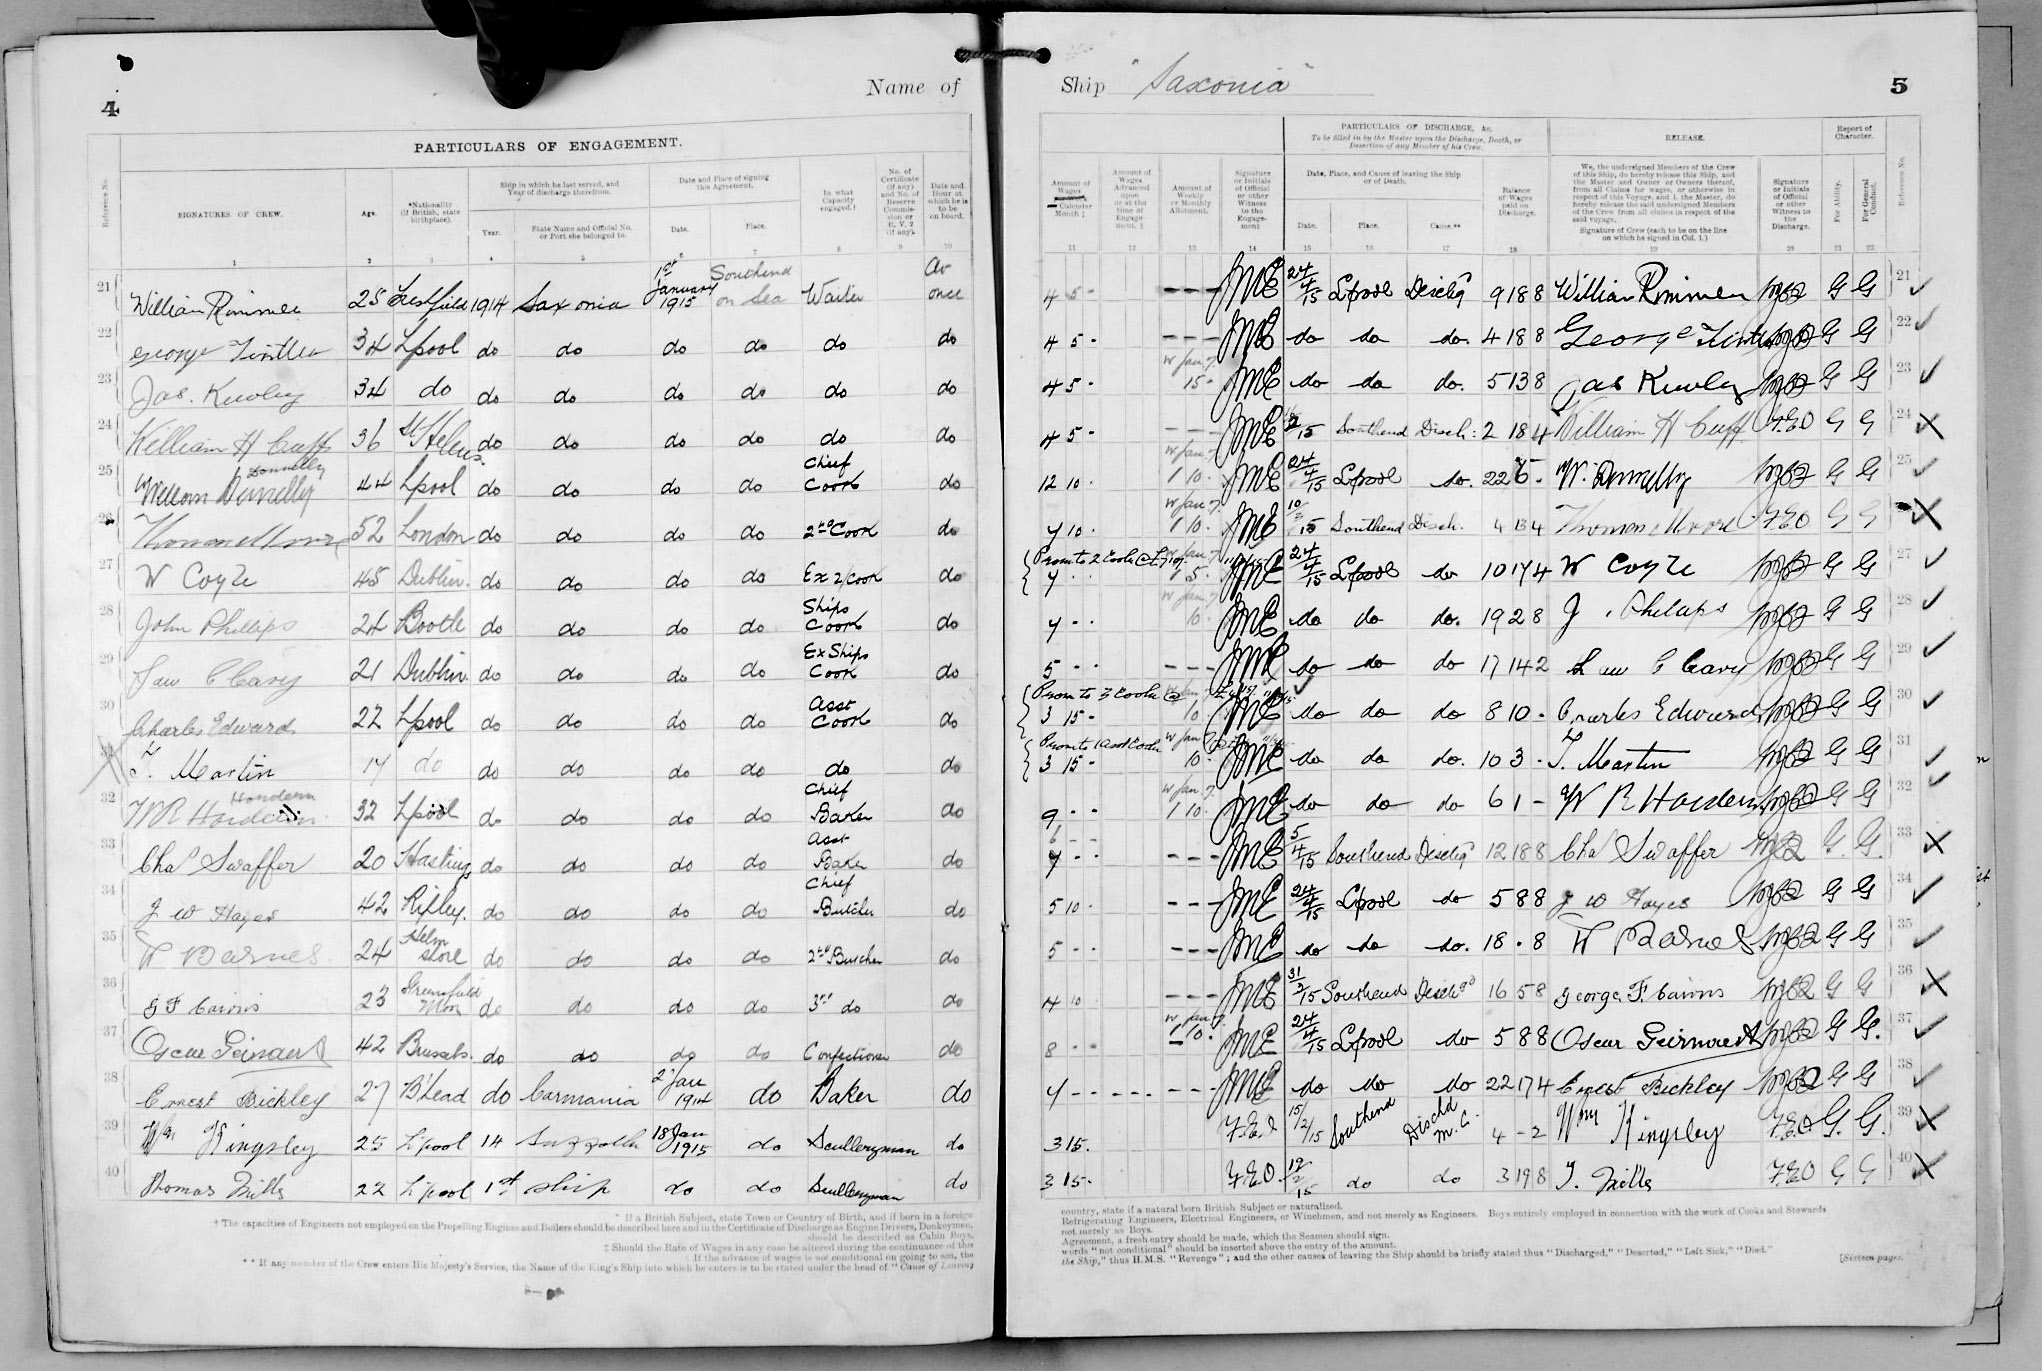 4
Name of
PARTICULARS OF ENGAGEMENT.
Reference No.
SIGNATURES OF CREW.
Age.
*Nationality (If British, state birthplace).
Ship in which he last served, and Year of discharge therefrom.
Year.
State Name and Official No. or Port she belonged to.
Date and Place of signing this Agreement.
Date.
Place.
In what Capacity engaged.†
No. of Certificate (if any) and No. of Reserve Commission or R.V. 2 (if any).
Date and Hour at which he is to be on board.
1 2 3 4 5 6 7 8 9 10
21 William Rimmer 25 1914 Saxonia 1st January 1915 Southend on Sea Waiter At once
22 George 34 Lpool do do do do do do
23 Jas. Kewley 34 do do do do do do do
24 William H Cuff 36 St Helens. do do do do do do
25 William Donnelly Donnelly 44 Lpool do do do do Chief Cook do
26 Thomas Moore 52 London do do do do 2nd Cook do
27 W Coyle 45 Dublin. do do do do Ex 2/Cook do
28 John Phillips 24 Bootle do do do do Ships Cook do
29 C Cavy 21 Dublin. do do do do Ex Ships Cook do
30 Charles Edward 22 Lpool do do do do Asst Cook do
31 T. Martin 17 do do do do do do do
32 W R 32 Lpool do do do do Chief Baker do
33 Chas Swaffer 20 Hastings do do do do Asst Baker do
34 J W Hayes 42 Ripley. do do do do Chief Butcher do
35 W Barnes. 24 Helm shore do do do do 2nd Butcher do
36 G F Cairns 23 do do do do 3rd do do
37 Oscar 42 Brussels. do do do do Confectioner do
38 Ernest Bickley 27 B'Head do Carmania 2nd Jan 1914 do Baker do
39 Wm Kingsley 25 L'pool 14 18 Jan 1915 do Sculleryman do
40 Thomas Mills 22 L'pool 1st ship do do Sculleryman do
* If a British Subject, state Town or Country of Birth, and if born in a foreign
† The capacities of Engineers not employed on the Propelling Engines and Boilers should be described here and in the Certificate of Discharge as Engine Drivers, Donkeymen,
should be described as Cabin Boys,
‡ Should the Rate of Wages in any case be altered during the continuance of this
If the advance of wages is not conditional on going to sen, the
** If any member of the Crew enters His Majesty's Service, the Name of the King's Ship into which he enters is to be stated under the head of "Cause of Leaving
Ship "Saxonia"
5
PARTICULARS OF DISCHARGE, &c.
To be filled in by the Master upon the Discharge, Death, or Desertion of any Member of his Crew.
RELEASE.
Report of Character.
Amount of Wages Calendar Month ‡
Amount of Wages Advanced upon or at the time of Engagement. ‡
Amount of Weekly or Monthly Allotment.
Signature or Initials of Official or other Witness to the Engagement
Date, Place, and Cause of leaving the Ship or of Death.
Date.
Place.
Cause.**
Balance of Wages paid on Discharge.
We, the undersigned Members of the Crew of this Ship, do hereby release this Ship, and the Master and Owner or Owners thereof, from all Claims for wages, or otherwise in respect of this Voyage, and I, the Master, do hereby release the said undersigned Members of the Crew from all claims in respect of the said voyage.
Signature of Crew (each to be on the line on which he signed in Col. 1.)
Signature or Initials of Official or other Witness to the Discharge.
For Ability.
For General Conduct.
Reference No.
11 12 13 14 15 16 17 18 19 20 21 22
4 5 - - - - JME 24/4/15 Lpool Dischgd 9 18 8 William Rimmer G G 21
4 5 - - - - JME do do do. 4 18 8 George G G 22
4 5 - W Jan 7. 15 - JME do do do. 5 13 8 Jas Kewley G G 23
4 5 - - - - JME Southend Disch: 2 18 4 William H Cuff F.E.O G G 24
12 10 - W Jan 7. 1 10. JME 24/4/15 Lpool do. W. Donnelly G G 25
7 10 . W Jan 7. 1 10. JME Southend Disch. 4 13 4 Thomas Moore F.E.O G G 26
Prom to 2 Cook @ W Jan 7.
7 . . JME 24/4/15 Lpool do 10 17 4 W Coyle G G 27
7 - - W Jan 7. 10. JME do do do. 19 2 8 J. Phillips G G 28
5 - - - - - JME do do do 17 14 2 C Cavy G G 29
Prom to 3 Cook @
3 15 - 10. JME do do do 8 10 - Charles Edward G G 30
Prom to 1 Asst Cook W Jan
3 15 - 10. JME do do do. 10 3 - T. Martin G G 31
9 - - W Jan 7. 1 10. JME do do do 6 1 - W R G G 32
6 - -
7 - - - - - JME 5/4/15 Southend Dischgd 12 18 8 Chas Swaffer G. G. 33
5 10 - - - - JME 24/4/15 Lpool do 5 8 8 J W Hayes G G 34
5 - - - - - JME do do do. 18 . 8 W Barnes G G 35
4 10 - - - JME 31/3/15 Southend Dischgd 16 5 8 George. F. Cairns G G 36
8 - - W Jan 7. 1 10. JME 24/4/15 Lpool do 5 8 8 Oscar G G. 37
7 - - - - - - - - JME do do do 22 17 4 Ernest Bickley G G 38
3 15. F.E.O 15/2/15 Southend Dischd M.C. 4 - 2 Wm Kingsley F.E.O. G. G. 39
3 15 - F.E.O. 19/2/15 do do 3 19 8 T. Mills F.E.O G G 40
country, state if a natural born British Subject or naturalised.
Refrigerating Engineers, Electrical Engineers, or Winchmen, and not merely as Engineers. Boys entirely employed in connection with the work of Cooks and Stewards
not merely as Boys.
Agreement, a fresh entry should be made, which the Seamen should sign.
words "not conditional" should be inserted above the entry of the amount.
the Ship," thus H.M.S. "Revenge"; and the other causes of leaving the Ship should be briefly stated thus "Discharged," "Deserted," "Left Sick," "Died."
[Sixteen pages.